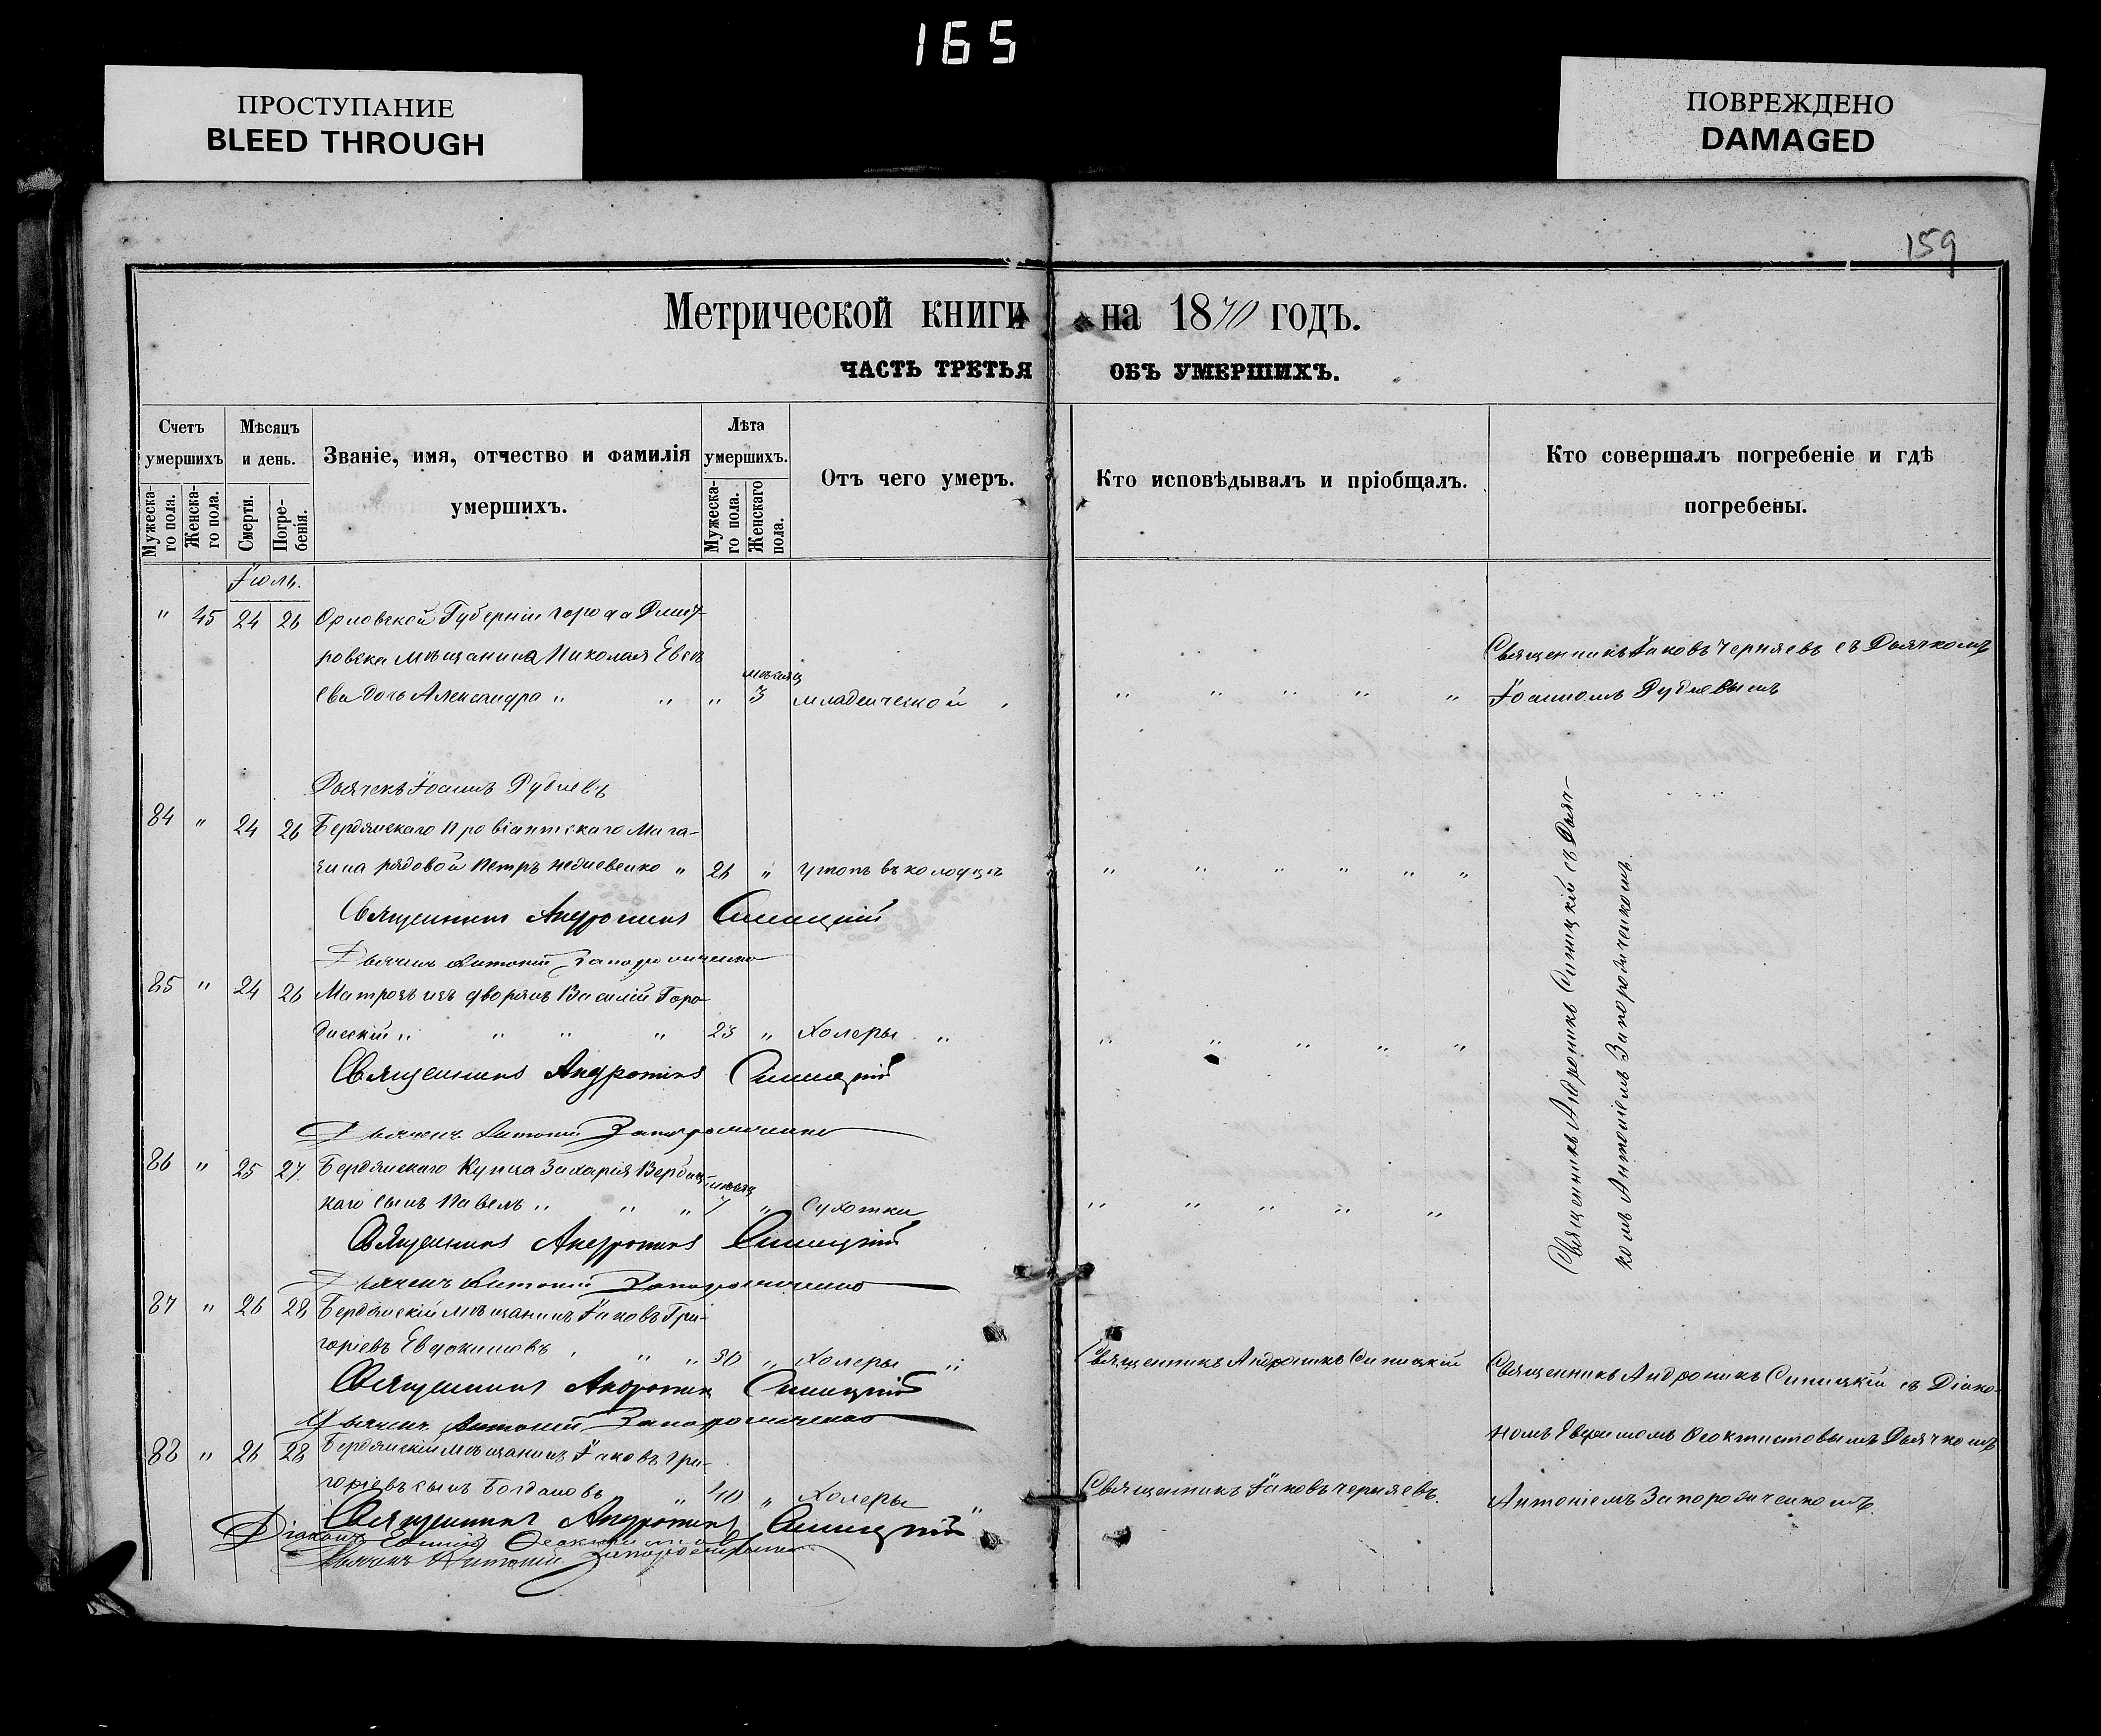 165
ПРОСТУПАНИЕ
BLEED THROUGH
ПОВРЕЖДЕНО
DAMAGED
159
Метрической книги на 1870 годъ.
ЧАСТЬ ТРЕТЬЯ ОБЪ УМЕРШИХЪ.
Счетъ умершихъ
Мужеска-го пола.
Женска-го пола.
Мѣсяцъ и день.
Смерти.
Погре-бенія.
Званіе, имя, отчество и фамилія умершихъ.
Лѣта умершихъ.
Мужеска-го пола.
Женскаго пола.
Отъ чего умеръ.
Кто исповѣдывалъ и пріобщалъ.
Кто совершалъ погребеніе и гдѣ погребены.
Іюль.
" 45 24 26 Орловской Губерніи города Дмит-
ровска мѣщанина Николая Евсѣ
ева дочь Александра " " " мѣсяц 3 младенческой " " " " "
Священникъ Іаковъ Черняевъ съ Дьячкомъ
Іоанномъ Рубневымъ
Дьячекъ Іоаннъ Рубневъ
84 " 24 26 Бердянскаго Провіантскаго Мага-
зина рядовой Петръ " 26 " утопъ въ колодцѣ " " " " " "
Священникъ Андроникъ Синицкій
Дьячекъ Антоній Запорожченко
85 " 24 26 Матрозъ изъ дворянъ Василій Горо-
дисскій " " " " 23 " Холеры " " " " " "
Священникъ Андроникъ Синицкій
Дьячекъ Антоній Запорожченко
86 " 25 27 Бердянскаго Купца Захарія Вербиц-
каго сынъ Павелъ " " " мѣсяц 7 " Сухотки " " " " "
Священникъ Андроникъ Синицкій
Дьячекъ Антоній Запорожченко
Священникъ Андроникъ Синицкій съ Дьяч-
комъ Антоніемъ Запорожченкомъ.
87 " 26 28 Бердянскій мѣщанинъ Іаковъ Гри-
горіевъ Евдокимовъ " " " 30 " Холеры "
Священникъ Андроникъ Синицкій
Священникъ Андроникъ Синицкій съ Діако-
Священникъ Андроникъ Синицкій
Дьячекъ Антоній Запорожченко
номъ Евфимомъ Феоктистовымъ Дьячкомъ
88 " 26 28 Бердянскій мѣщанинъ Іаковъ Гри-
горіевъ сынъ Богдановъ " 40 " Холеры "
Священникъ Іаковъ Черняевъ.
Антоніемъ Запорожченкомъ.
Священникъ Андроникъ Синицкій
Діаконъ Феоктистовъ
Дьячекъ Антоній Запорожченко